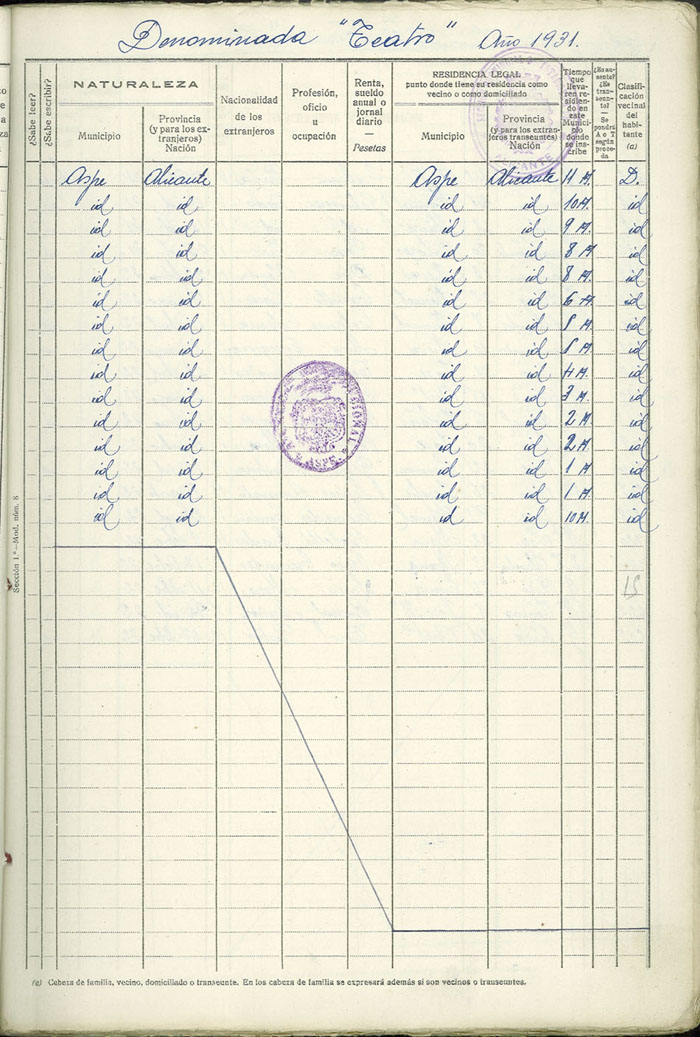 Denominada "Teatro" Año 1931.
¿Sabe leer?
¿Sabe escribir?
NATURALEZA
Municipio
Provincia
(y para los ex-
tranjeros)
Nación
Nacionalidad
de los
extranjeros
Profesión,
oficio
u
ocupación
Renta,
sueldo
anual o
jornal
diario
—
Pesetas
RESIDENCIA LEGAL
punto donde tiene su residencia como
vecino o como domiciliado
Municipio
Provincia
(y para los extran-
jeros transeuntes)
Nación
Tiempo
que
lleva-
ren re-
sidien-
do en
este
Munici-
pio
donde
se ins-
cribe
¿Es au-
sente?
¿Es
tran-
seun-
te?
—
Se
pondrá
A o T
según
proce-
da
Clasifi-
cación
vecinal
del
habi-
tante
(a)
Aspe Alicante Aspe Alicante 11 M. D.
id id id id 10 M. id
id id id id 9 M. id
id id id id 8 M id
id id id id 8 M. id
id id id id 6 M. id
id id id id M. id
id id id id M. id
id id id id M. id
id id id id 3 M. id
id id id id 2 M. id
id id id id 2 M. id
id id id id 1 M id
id id id id 1 M. id
id id id id 10 M. id
15
Sección 1.ª—Mod. núm. 8
ASPE
ALICANTE
(a) Cabeza de familia, vecino, domiciliado o transeunte. En los cabeza de familia se expresará además si son vecinos o transeuntes.